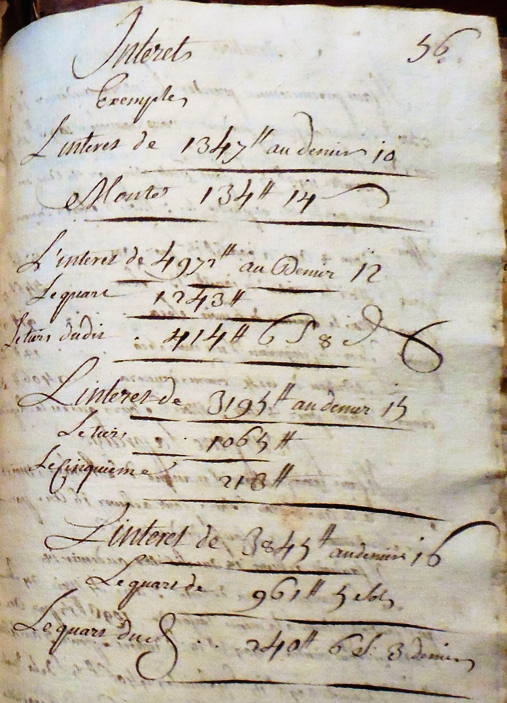 Interets 56
Exemples
Linteret de 1347# au denier 10
Monte 134# 14
L'interet de 4972# au denier 12
Le quart 1243#
Le tiers dudit . 414# 6 S 8 d
Linteret de 3195# au denier 15
Le tiers . 1065#
Le cinquieme 213#
Linteret de 3845# au denier 16
Le quart de 961# 5 sols
Le quart dud .. 240# 6 S. 3 deniers